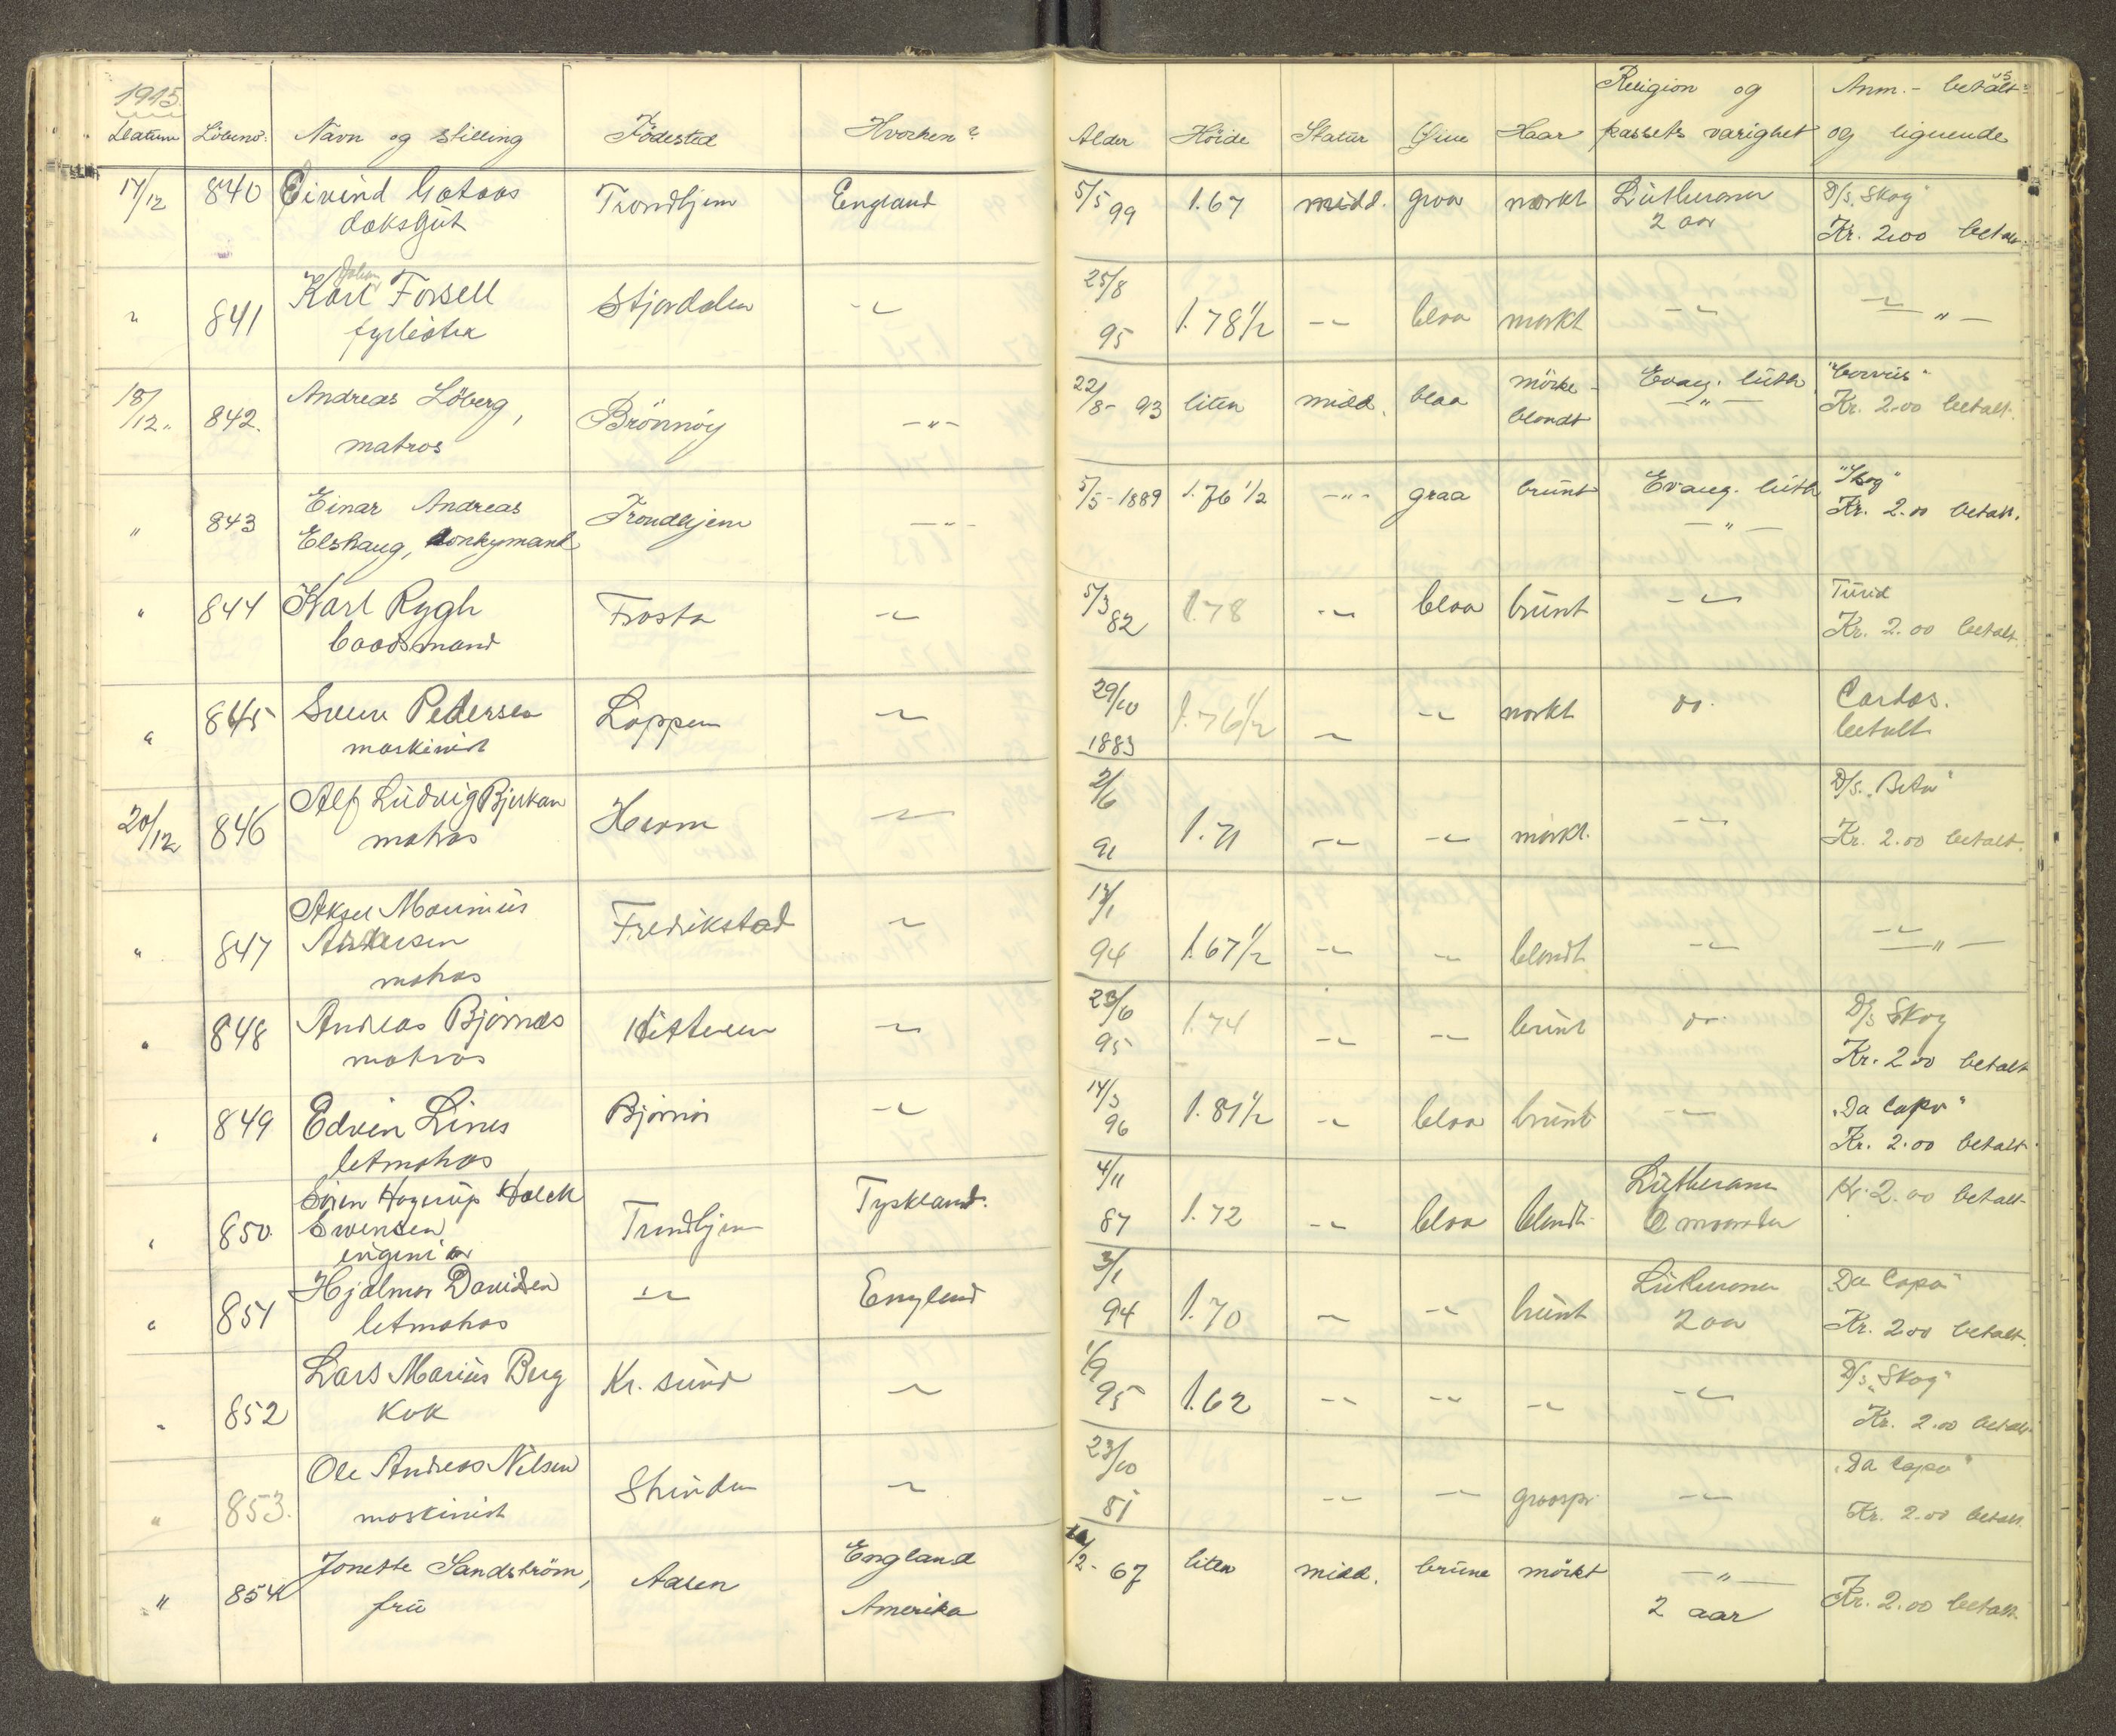 1915.
Datum Löbeno: Navn og stilling Födested Hvorhen? Alder Höide Statur Öine Haar Religion og passets varighet Anm. - betalt og lignende
17/12 840 Eivind England 5/5 99 1.67 midd. graa mørkt Lutheraner D/S „Skog"
daksgut Trondhjem 2 aar Kr. 2.00 betalt.
" 841 Karl Johan Forsell Stjørdalen -"- 25/8 95 1.78 1/2 -"- blaa mørkt -"- -"-
fyrbøter
18/12. 842. Andreas Löberg, Brönnöy -"- 22/8- 93 liten midd. blaa mörke- Evang. luth
matros blondt -"- Kr. 2.00 betalt.
" 843 Einar Andreas Trondhjem -"- 5/5-1889 1.76 1/2 -"- graa brunt Evang. luth "Skog"
Elshaug, donkymand -"- Kr. 2.00 betalt.
" 844 Karl Rygh Frosta -"- 5/3 82 1.78 -"- blaa brunt -"- Turid
baadsmand Kr. 2.00 betalt.
" 845 Pedersen Loppen -"- 29/10 1883 1.76 1/2 -"- -"- mørkt do.
maskinist betalt
20/12 846 Alf Ludvig -"- 2/6 91 1.71 -"- -"- mørkt. -"- D/S. „Beta"
matros Kr. 2.00 betalt.
" 847 Aksel Marinius Fredrikstad -"- 94 1.67 1/2 -"- -"- blondt -"- -"-
Andersen
matros
" 848 Andreas Bjørnæs Hitteren -"- 23/6 95 1.74 -"- -"- brunt do. D/S Skog
matros Kr. 2.00 betalt
" 849 Edvin Bjørnør -"- 14/3 96 1.81 1/2 -"- blaa brunt -"- „Da Capo"
letmatros Kr. 2.00 betalt.
" 850. Hagerup Trondhjem Tyskland. 4/11 87 1.72 -"- blaa blondt Lutheraner Kr. 2.00 betalt
Svensen 6 maaneder
ingeniør
" 851 Hjalmar Davidsen -"- England 3/1 94 1.70 -"- -"- brunt Lutheraner „Da Capo"
letmatros 2 aar Kr. 2.00 betalt.
" 852 Lars Marius Berg Kr. sund -"- 1/9 95 1.62 -"- -"- -"- -"- D/S „Skog"
kok Kr. 2.00 betalt.
" 853. Ole Andreas Nilsen Strinden -"- 23/10 81 -"- -"- -"- „Da Capo"
maskinist Kr. 2.00 betalt.
" 854 Jonette Sandström, Aasen England 67 liten midd. brune mörkt -"-
fru Amerika 2 aar Kr. 2.00 betalt.